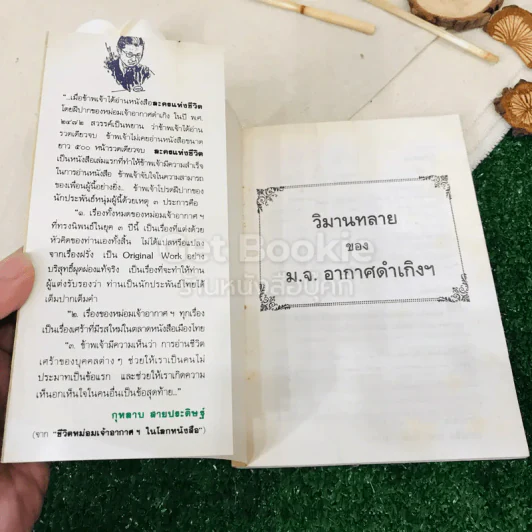 "...เมื่อข้าพเจ้าได้อ่านหนังสือละครแห่งชีวิต
โดยฝีปากของหม่อมเจ้าอากาศดำเกิง ในปี พ.ศ.
๒๔๗๒ สวรรค์เป็นพยาน ว่าข้าพเจ้าได้อ่าน
รวดเดียวจบ ข้าพเจ้าไม่เคยอ่านหนังสือขนาด
ยาว ๕๐๐ หน้ารวดเดียวจบ ละครแห่งชีวิต
เป็นหนังสือเล่มแรกที่ทำให้ข้าพเจ้ามีความสำเร็จ
ในการอ่านหนังสือ ข้าพเจ้าจับใจในความสามารถ
ของเพื่อนผู้นี้อย่างยิ่ง.. ข้าพเจ้าโปรดฝีปากของ
นักประพันธ์หนุ่มผู้นี้ด้วยเหตุ ๓ ประการคือ
"๑. เรื่องทั้งหมดของหม่อมเจ้าอากาศ ฯ
ที่ทรงนิพนธ์ในยุค ๓ ปีนี้ เป็นเรื่องที่แต่งด้วย
หัวคิดของท่านเองทั้งสิ้น ไม่ได้แปลหรือแปลง
จากเรื่องฝรั่ง เป็น Original Work อย่าง
บริสุทธิ์ผุดผ่องแท้จริง เป็นเรื่องที่จะทำให้ท่าน
ผู้แต่งรับรองว่า ท่านเป็นนักประพันธ์ไทยได้
เต็มปากเต็มคำ
"๒. เรื่องของหม่อมเจ้าอากาศ ฯ ทุกเรื่อง
เป็นเรื่องเศร้าที่มีรสใหม่ในตลาดหนังสือเมืองไทย
"๓. ข้าพเจ้ามีความเห็นว่า การอ่านชีวิต
เศร้าของบุคคลต่าง ๆ ช่วยให้เราเป็นคนไม่
ประมาทเป็นข้อแรก และช่วยให้เราเกิดความ
เห็นอกเห็นใจในคนอื่นเป็นข้อสุดท้าย..."
กุหลาบ สายประดิษฐ์
(จาก "ชีวิตหม่อมเจ้าอากาศ ฯ ในโลกหนังสือ")
วิมานทลาย
ของ
ม.จ. อากาศดำเกิงฯ
Bookie